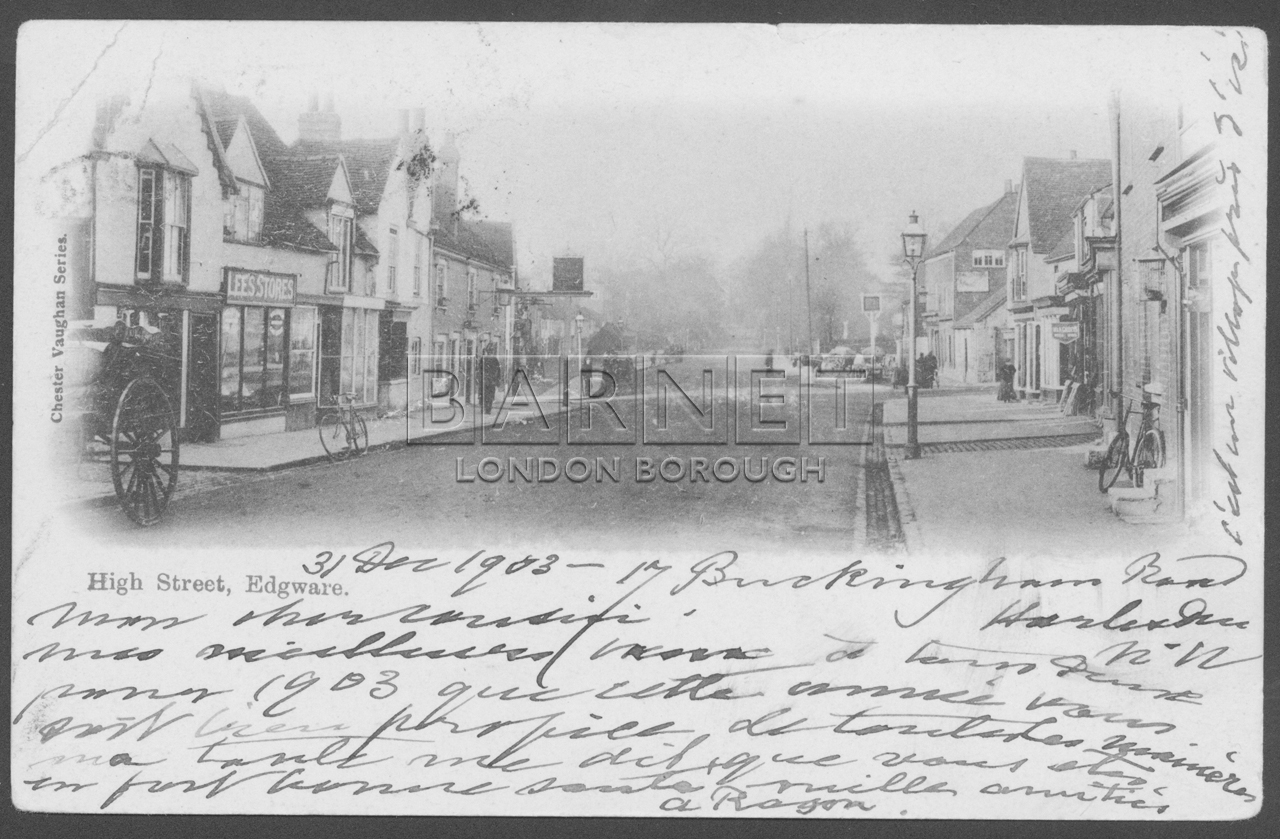 Chester Vaughan Series.
LEE'S STORES
BARNET
LONDON BOROUGH
High Street, Edgware.
31 Dec 1903 – 17 Buckingham Road
Harlesden
N W
mon cher cousin
mes meilleures vœux à tous deux
pour 1903 que cette année vous
soit bien propice de toutes les manières
ma tante me dit que vous êtes
en fort bonne santé, mille amitiés
a Ragon.
c'est un village près d'ici